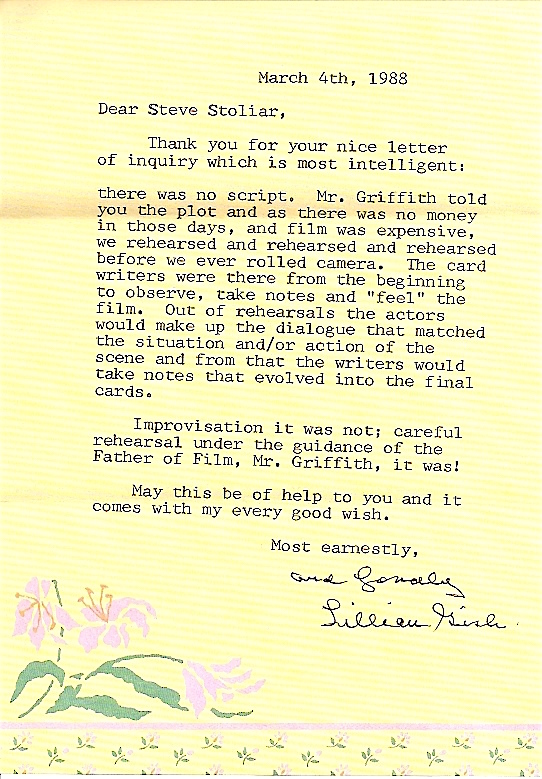 March 4th, 1988
Dear Steve Stoliar,
Thank you for your nice letter
of inquiry which is most intelligent:
there was no script.  Mr. Griffith told
you the plot and as there was no money
in those days, and film was expensive,
we rehearsed and rehearsed and rehearsed
before we ever rolled camera.  The card
writers were there from the beginning
to observe, take notes and "feel" the
film.  Out of rehearsals the actors
would make up the dialogue that matched
the situation and/or action of the
scene and from that the writers would
take notes that evolved into the final
cards.
Improvisation it was not; careful
rehearsal under the guidance of the
Father of Film, Mr. Griffith, it was!
May this be of help to you and it
comes with my every good wish.
Most earnestly,
and
Lillian Gish